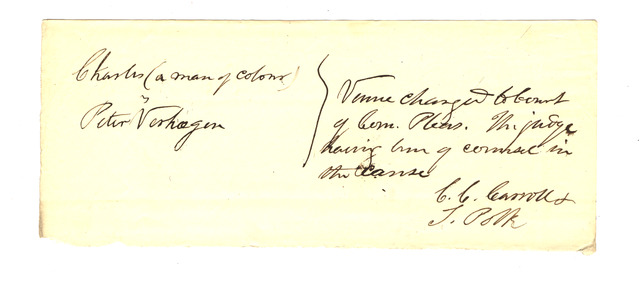 Charles (a man of colour)
vs
Peter Verhagen
Venue changed to Court
of Com. Pleas. The judge
having been of counsel in
the cause
C. C. Carroll &
T. Polk